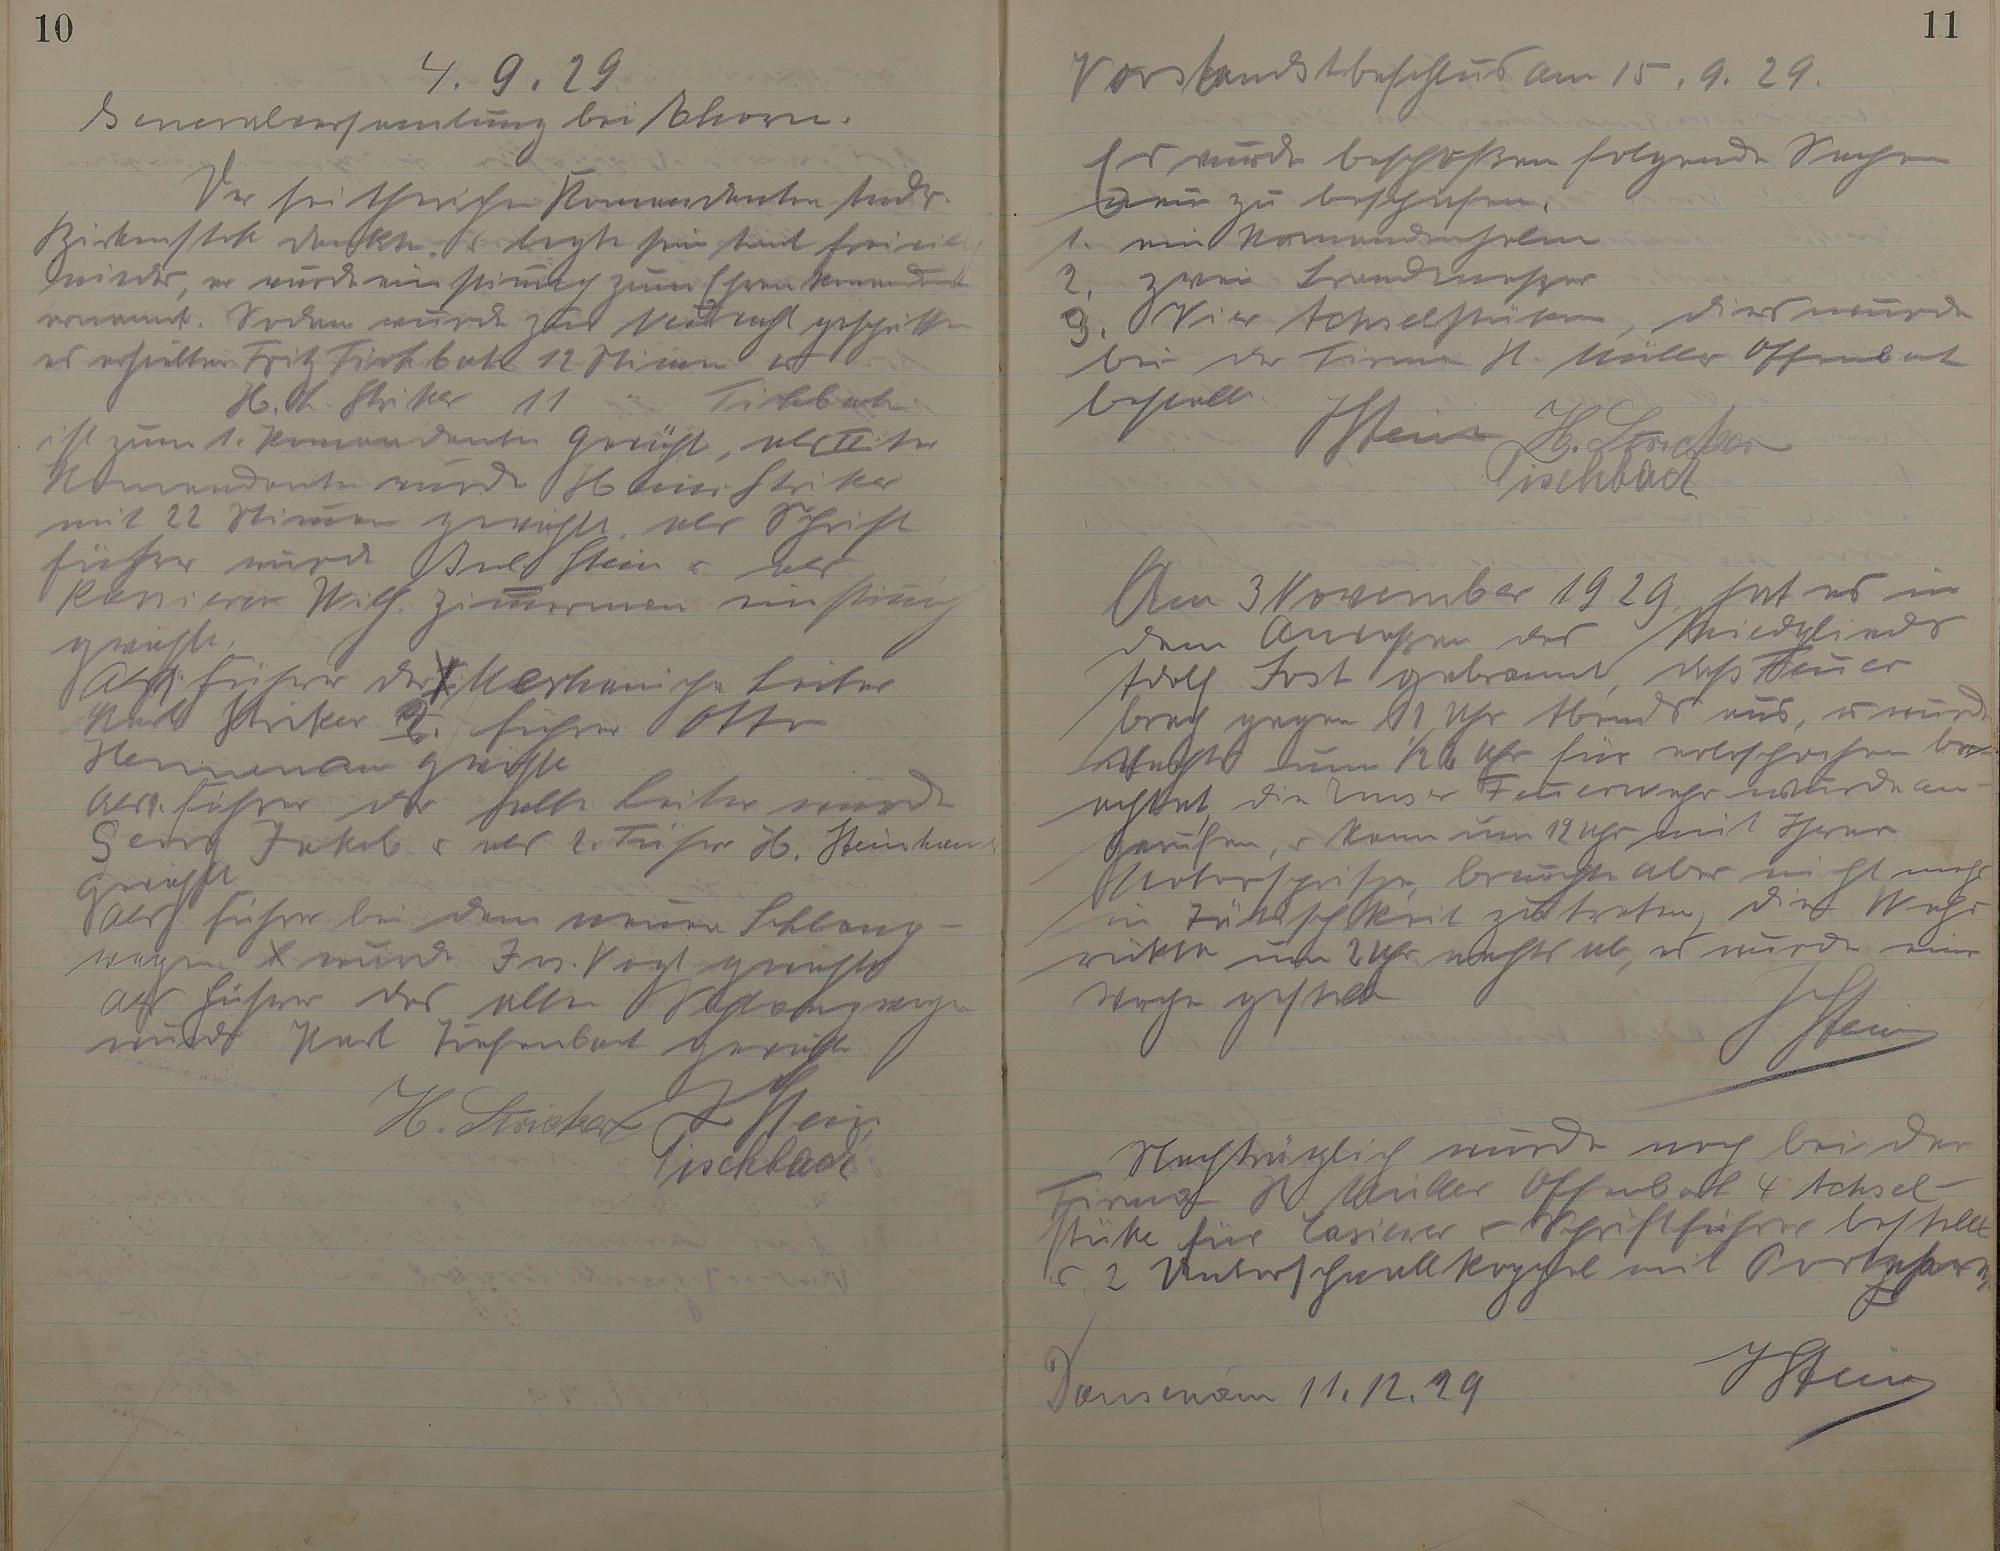 10
4. 9. 29
Generalversamlung bei Ahorn.
Der seitherige Komandanten Andr.
Birkenstok dankte u legte sein Amt freiwilig
nieder, er wurde einstimig zum Ehren Komandant
ernannt. Sodan wurde zur Neuwahl geschritten
es erhielten Fritz Fischbach 12 Stimen u
H. A. Striker 11 " Fischbach
ist zum 1. Komandanten gewählt, als II ter
Komandanten wurde Heinr. Striker
mit 22 Stimen gewählt. als Schrift
führer wurde Stein u als
Kassierer Wilh. Zimerman einstimig
gewählt.
Als 1. Führer der Mechaniche Leiter
Karl Striker 2. führer Otto
Hermann gewählt
Als 1. Führer der halte Leiter wurde
Georg Jakob u als 2. Führer H. Steinhau
gewählt
Als führer bei dem neuen Schlang-
wagen wurde Jos. Vogt gewählt
als führer des alten Schlangwagen
wurde Karl Tiefenbach gewählt
H. Stricker J. Stein
Fischbach
11
Vorstandstbeschlus am 15. 9. 29.
Es wurde beschloßen folgende Sachen
neu zu beschafen.
1. ein Komandenhelm
2. zwei
3. Vier Achselstüken, dies wurde
bei der Firma H. Müller Offenbach
bestellt.
J Stein H. Stricker
Fischbach
Am 3 November 1929 hat es in
dem Anweßen des Mitdglieds
Adolf Jost gebrannt, daß Feuer
brach gegen 11 Uhr Abends aus, u wurde
Nachts um Uhr für erloschen betr-
achtet, die Emser Feuerwehr wurde an-
gerufen, u kam um 12 Uhr mit Ihrer
Motorspritze, brauchte aber nicht mehr
in Tätischkeit zu treten, die Wehr
rükte um 2 Uhr nachts ab, es wurde eine
Wache gestellt
J Stein
Nachträglich wurde noch bei der
Firma H Müller Offenbach 4 Achsel-
stüke für Casierer u Schriftführer bestellt
u 2 Unterschnallkoppel mit
Dausenau 11. 12. 29
J Stein